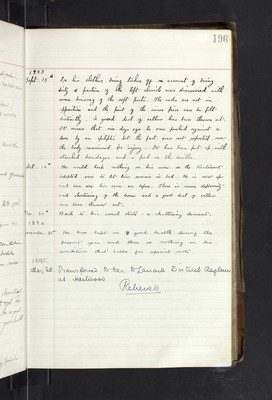 196
1893
Sept. 18th On his clothes being taken off on account of being
dirty a portion of the left clavicle was discovered with
some bruising of the soft parts. The ends are not in
apposition and the point of the inner piece can be felt
distinctly. A good deal of callus has been thrown out.
It seems that six days ago he was pushed against a
door by an epileptic but the fact was not reported nor
the body examined for injury. It has been put up with
attached bandages and a pad in the axilla.
Oct. 12th He would keep nothing on his arm so the treatment
adopted was to let him remain in bed. He is now up
and can use his arm as before. There is some deformity
and shortening of the bone and a good deal of callus
has been thrown out.
Back to his usual state - a chattering dement.
1894
He has kept in good health during the
present year and there is nothing in his
condition that calls for special note.
1895
May 20. Transferred to the Lanark District Asylum
at Hartwood
Relieved